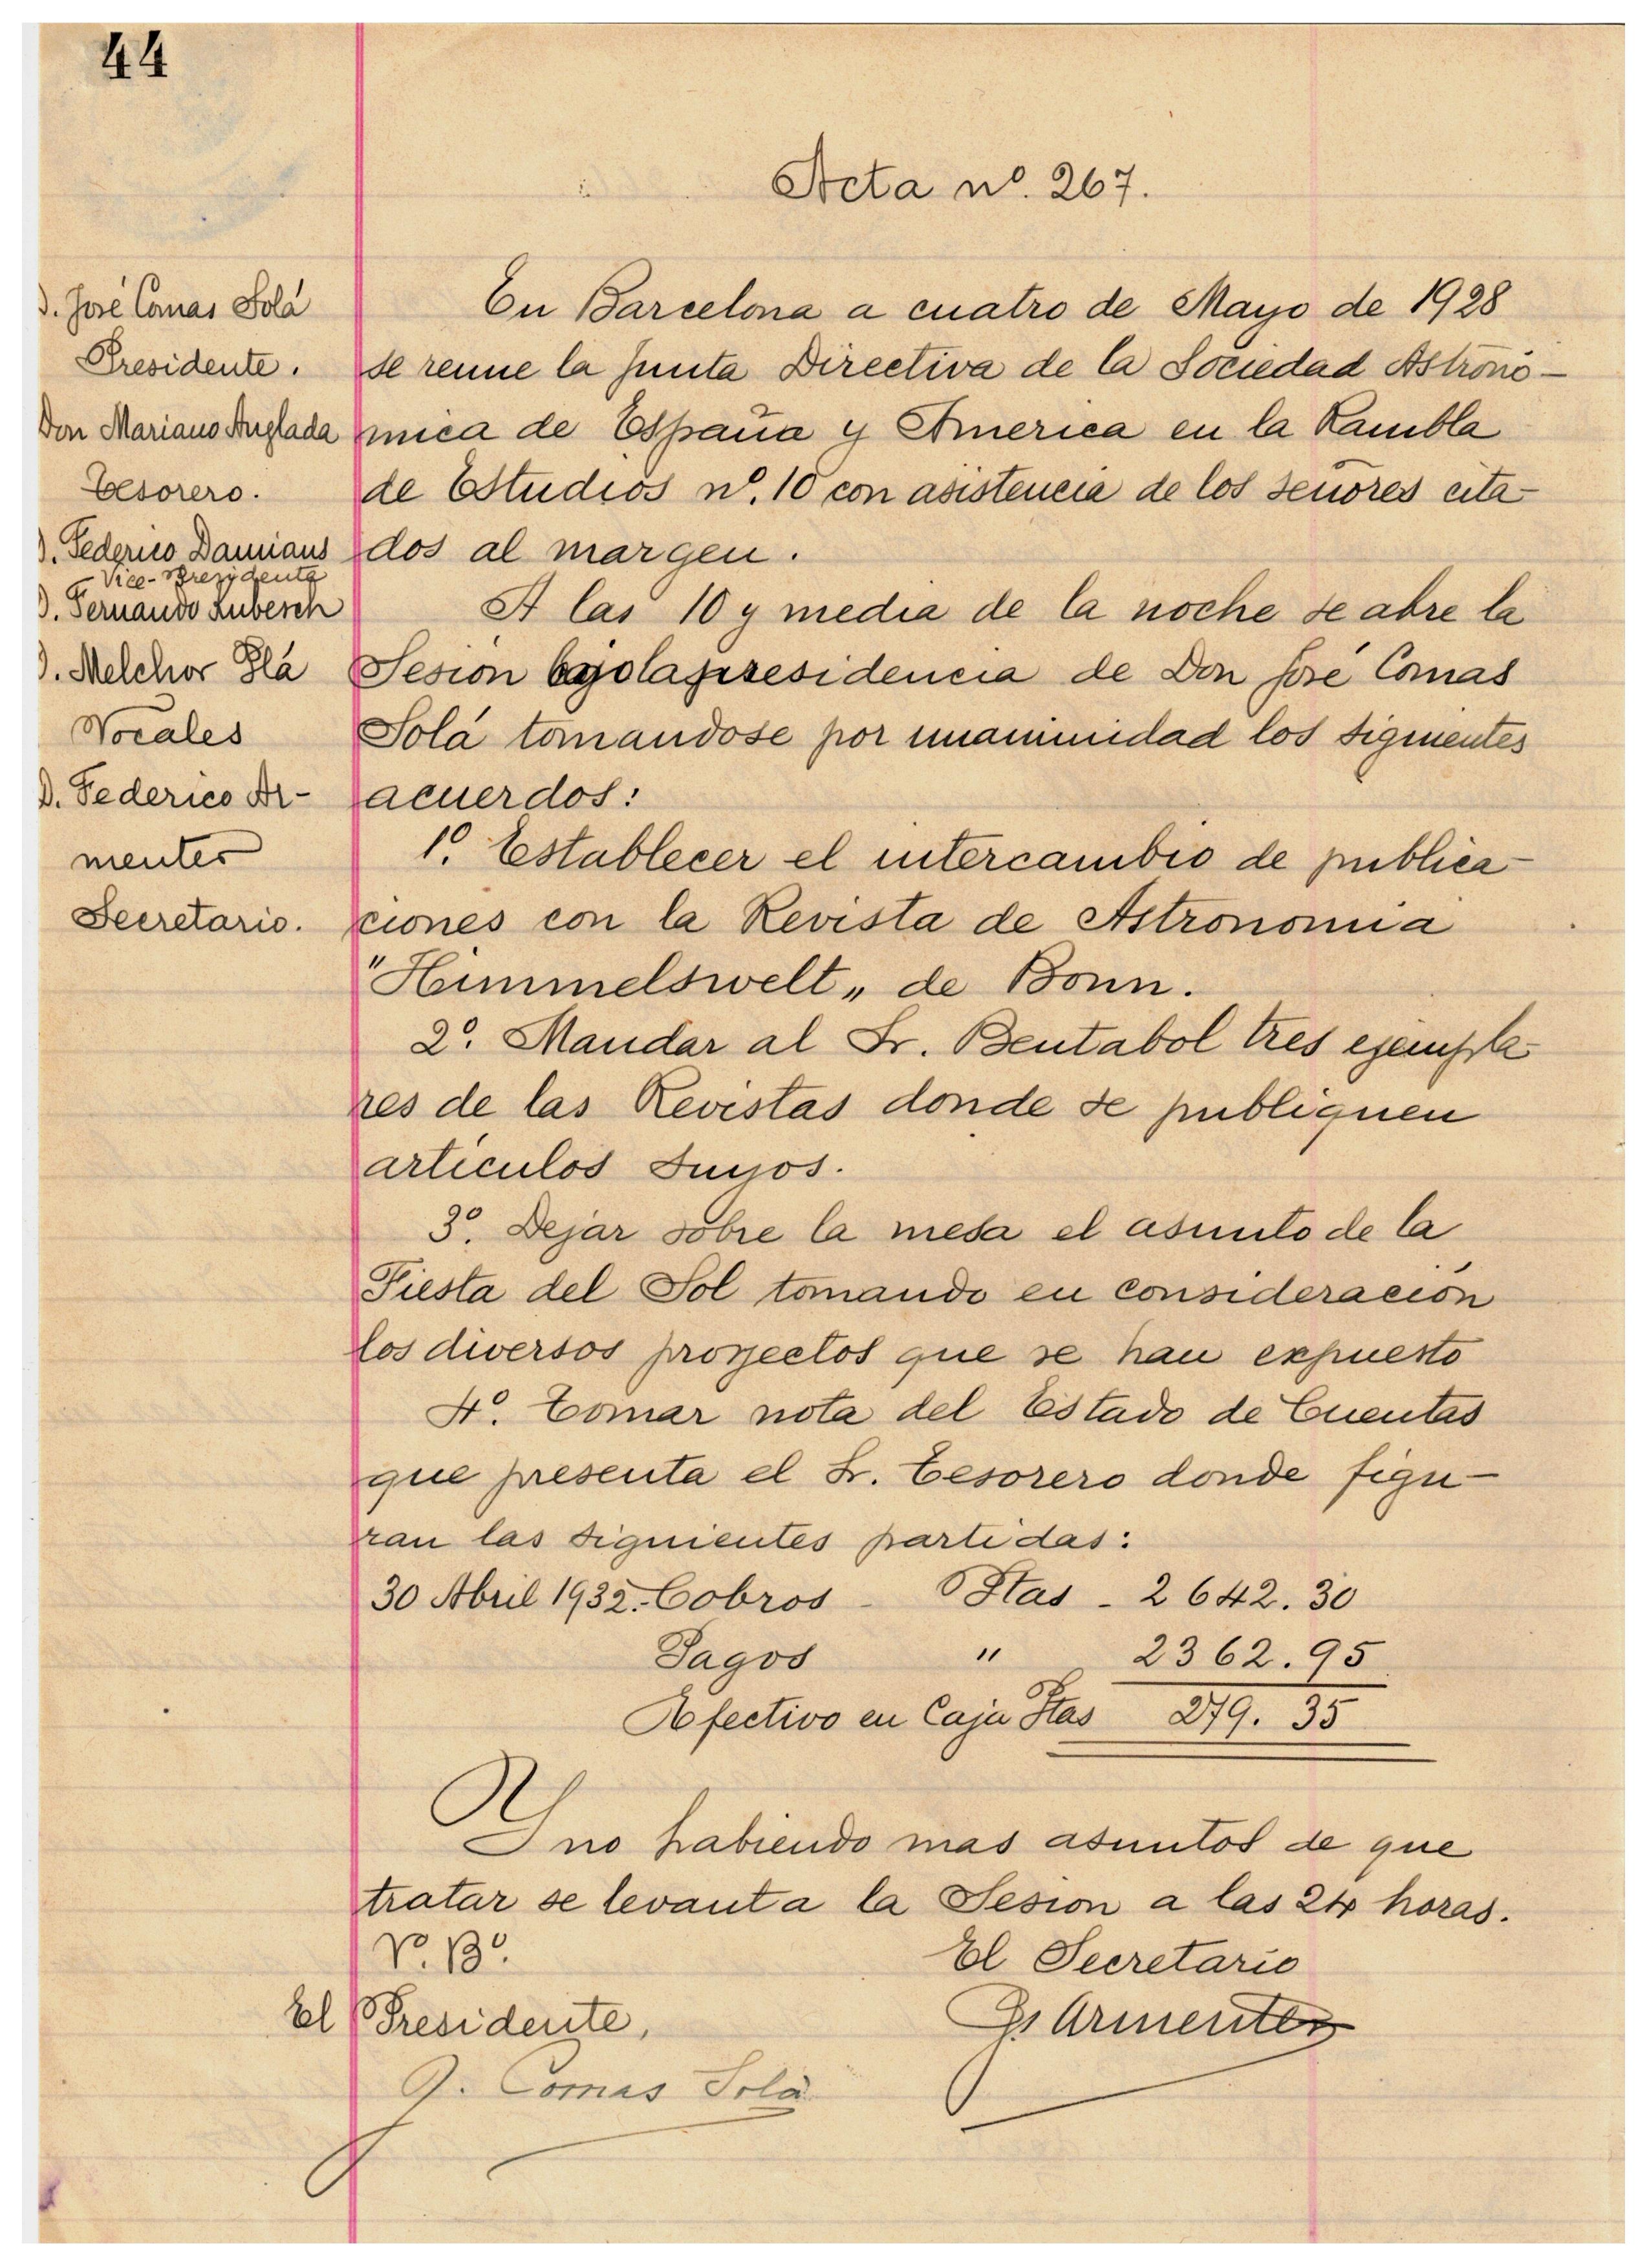 44
Acta nº. 267.
D. José Comas Solá
Presidente.
Don Mariano Anglada
Tesorero.
D. Federico Damians
Vice-Presidente
D. Fernando Lubesch
D. Melchor Plá
Vocales
D. Federico Ar-
menter
Secretario.
En Barcelona a cuatro de Mayo de 1928
se reune la Junta Directiva de la Sociedad Astronó-
mica de España y America en la Rambla
de Estudios nº. 10 con asistencia de los señores cita-
dos al margen.
A las 10 y media de la noche se abre la
Sesión bajo la presidencia de Don José Comas
Solá tomandose por unanimidad los siguientes
acuerdos:
1º. Establecer el intercambio de publica-
ciones con la Revista de Astronomia
"Himmelswelt„ de Bonn.
2º. Mandar al Sr. Bentabol tres ejempla-
res de las Revistas donde se publiquen
artículos suyos.
3º. Dejar sobre la mesa el asunto de la
Fiesta del Sol tomando en consideración
los diversos proyectos que se han expuesto
4º. Tomar nota del Estado de Cuentas
que presenta el Sr. Tesorero donde figu-
ran las siguientes partidas:
30 Abril 1932.- Cobros - Ptas - 2642.30
Pagos " 2362.95
Efectivo en Caja Ptas 279.35
Y no habiendo mas asuntos de que
tratar se levanta la Sesion a las 24 horas.
Vº. Bº.
El Secretario
El Presidente,
F. Armenter
J. Comas Solá